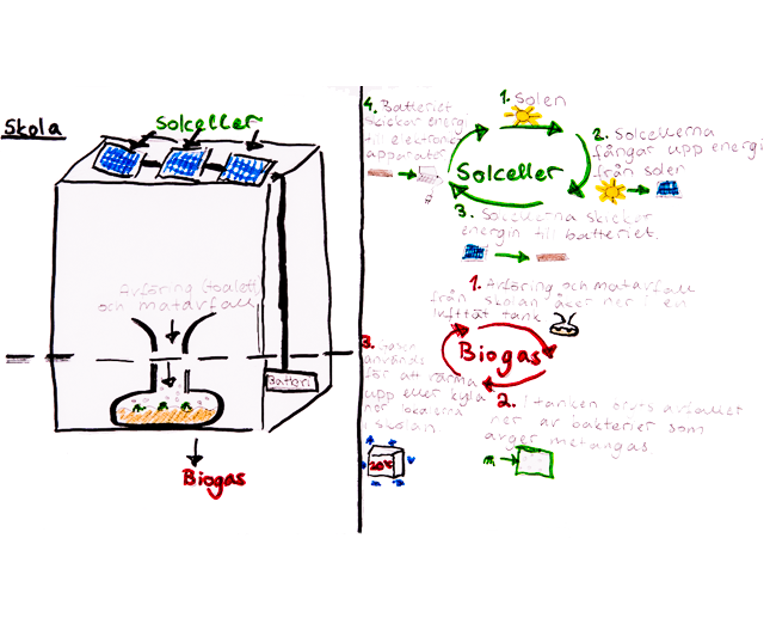 Skola
Solceller
Avföring (toalett)
och matavfall
Batteri
Biogas
4. Batteriet
skickar energi
till elektronik
apparater
1. Solen
2. Solcellerna
fångar upp energi
från solen
Solceller
3. Solcellerna skickar
energin till batteriet.
1. Avföring och matavfall
från skolan åker ner i en
lufttät tank
Biogas
3. Gasen
används
för att värma
upp eller kyla
ner lokalerna
i skolan
20°C
2. I tanken bryts avfallet
ner av bakterier som
avger metangas